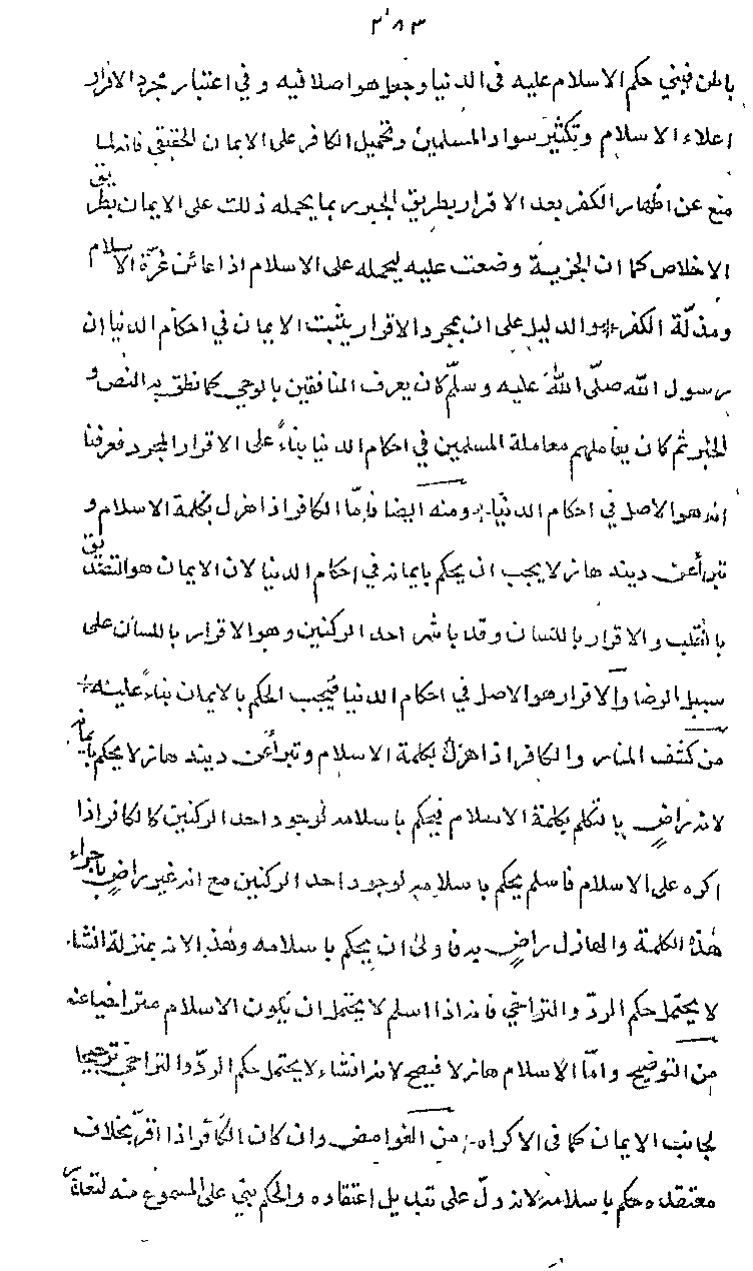 ٢٨٣
باطن فبني حكم الاسلام عليه فى الدنيا وجعل هو اصلا فيه و في اعتبار مجرد الاقرار
اعلاء الاسلام وتكثير سواد المسلمين وتحميل الكافر على الايمان الحقيقي فانه لما
منع عن اظهار الكفر بعد الاقرار بطريق الجبر ربما يحمله ذلك على الايمان بطريق
الاخلاص كما ان الجزية وضعت عليه ليحمله على الاسلام اذا عاين عزّة الاسلام
ومذلّة الكفر والدليل على ان بمجرد الاقرار يثبت الايمان في احكام الدنيا ان
رسول الله صلّى اللهُ عليه وسلّم كان يعرف المنافقين بالوحي كما نطق به النص و
الخبر ثم كان يعاملهم معاملة المسلمين في احكام الدنيا بناءً على الاقرار المجرد فعرفنا
انه هو الاصل في احكام الدنيا ومنه ايضا فامّا الكافر اذا هزل بكلمة الاسلام و
تبرأ عن دينه هازلا يجب ان يحكم بايمانه في احكام الدنيا لان الايمان هو التصديق
بالقلب والاقرار باللسان وقد باشر احد الركنين وهو الاقرار باللسان على
سبيل الرضا والاقرار هو الاصل في احكام الدنيا فيجب الحكم بالايمان بناءً عليه
من كشف المنار والكافر اذا هزل بكلمة الاسلام وتبرأ عن دينه هازلا يحكم بايمانه
لانه راضٍ بالتكلم بكلمة الاسلام فيحكم باسلامه لوجود احد الركنين كالكافر اذا
اكره على الاسلام فاسلم يحكم باسلامه لوجود احد الركنين مع انه غير راضٍ باجراء
هذه الكلمة والهازل راضٍ به فاولى ان يحكم باسلامه وهذا لانه بمنزلة انشاء
لا يحتمل حكم الردّ والتراخي فانه اذا اسلم لا يحتمل ان يكون الاسلام متراخيا عنه
من التوضيح وامّا الاسلام هازلا فيصح لانه انشاء لا يحتمل حكم الردّ والتراخي ترجيحا
لجانب الايمان كما فى الاكراه من الغوامض وان كان الكافر اذا اقرّ بخلاف
معتقده حكم باسلامه لانه دلّ على تبديل اعتقاده والحكم بني على المسموع منه لتعذّر